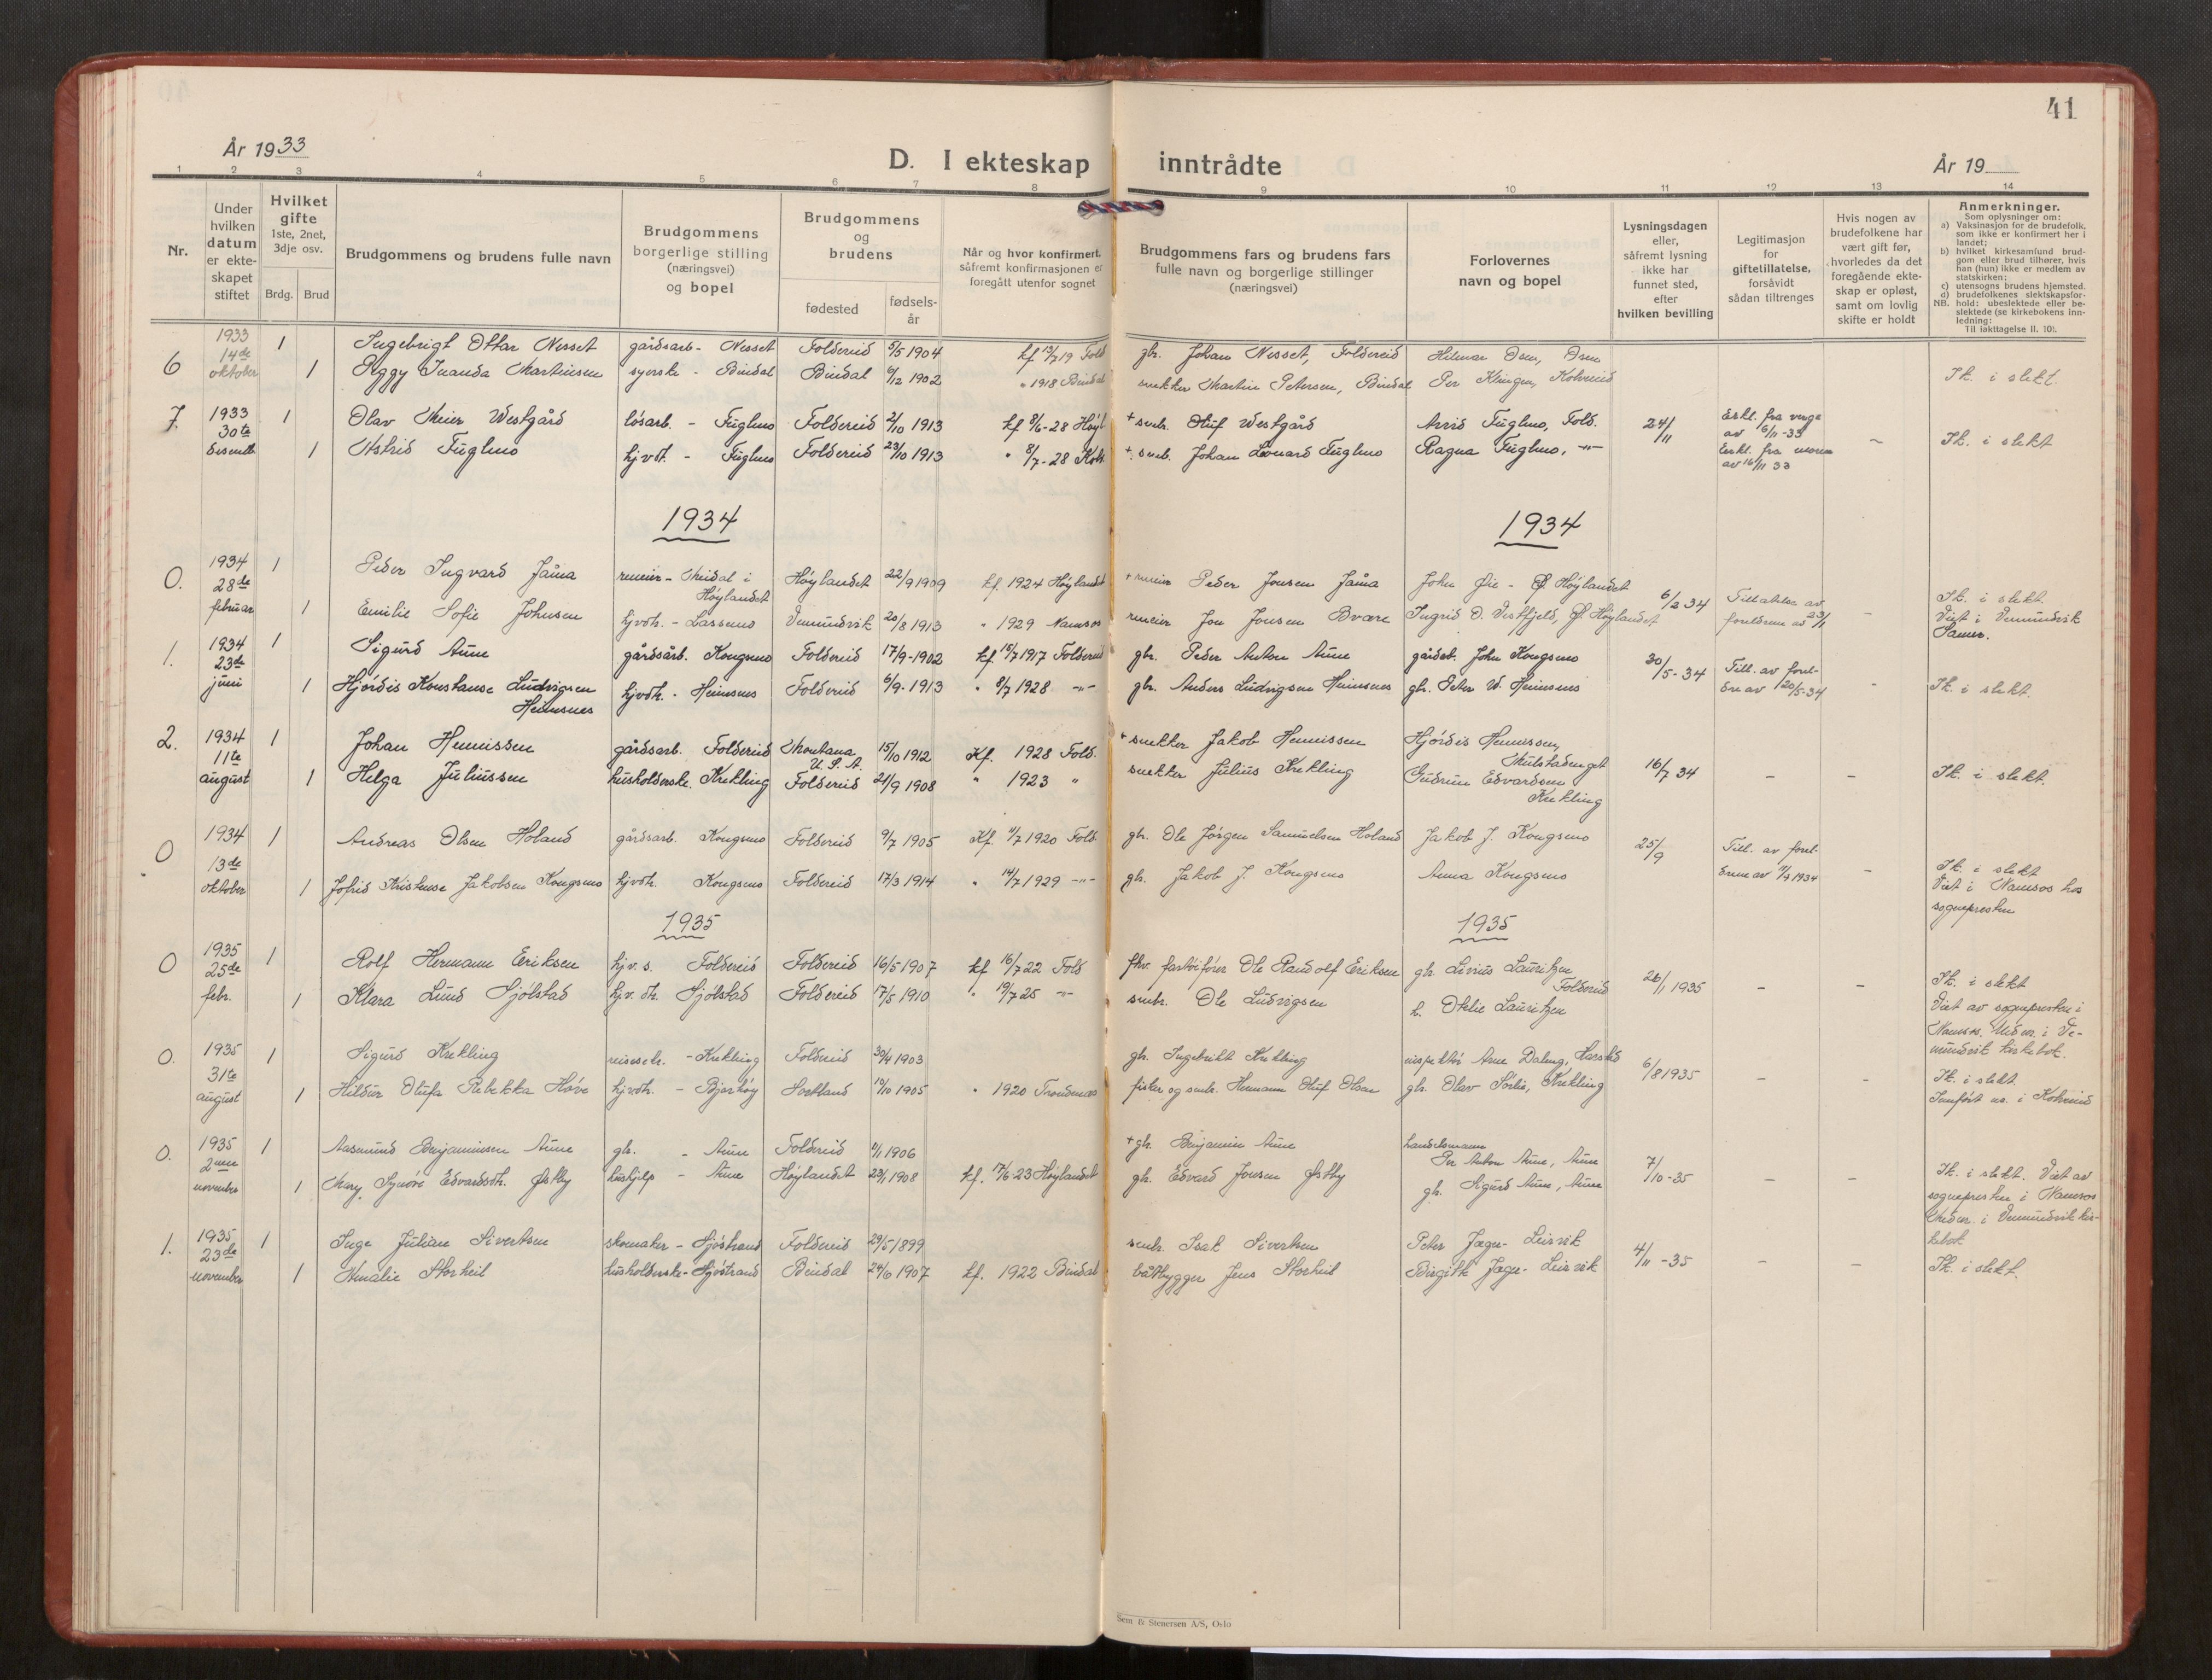 41
År 1933
D. I ekteskap inntrådte
År 19
1 2 3 4 5 6 7 8 9 10 11 12 13 14
Nr.
Under hvilken datum er ekteskapet stiftet
Hvilket gifte 1ste, 2net, 3dje osv.
Brdg. Brud
Brudgommens og brudens fulle navn
Brudgommens borgerlige stilling (næringsvei) og bopel
Brudgommens og brudens
fødested
fødsels-år
Når og hvor konfirmert. såfremt konfirmasjonen er foregått utenfor sognet
Brudgommens fars og brudens fars fulle navn og borgerlige stillinger (næringsvei)
Forlovernes navn og bopel
Lysningsdagen eller, såfremt lysning ikke har funnet sted, efter hvilken bevilling
Legitimasjon for giftetillatelse, forsåvidt sådan tiltrenges
Hvis nogen av brudefolkene har vært gift før, hvorledes da det foregående ekteskap er opløst, samt om lovlig skifte er holdt
Anmerkninger.
Som oplysninger om:
a) Vaksinasjon for de brudefolk, som ikke er konfirmert her i landet;
b) hvilket kirkesamfund brudgom eller brud tilhører, hvis han (hun) ikke er medlem av statskirken;
c) utensogns brudens hjemsted.
d) brudefolkenes slektskapsforhold: ubeslektede eller beslektede (se kirkebokens innledning:
NB.
Til iakttagelse II. 10).
6 1933 14de oktober 1 Ingebrigt Ottar Nesset gårdsarb. - Nesset Foldereid 5/5 1904 kf 13/7 19 Fold gbr. Johan Nesset, Foldereid Hilmar Osen, Osen
1 Peggy Inanda Martinsen syerske - Bindal Bindal 6/12 1902 " 1918 Bindal snekker Martin Petersen, Bindal Per Klingen, Kolvereid Ik. i slekt.
7. 1933 30te desemb. 1 Olav Meier Westgård løsarb. - Fuglmo Foldereid 2/10 1913 kf 8/6-28 Høyl + smbr. Oluf Westgård Arvid Fuglmo, Fold. 24/11 Erkl. fra verge av 6/11-33 -
1 Astrid Fuglmo hjvdt. - Fuglmo Foldereid 23/10 1913 " 8/7-28 Kolv +. smb. Johan Leonard Fuglmo Ragna Fuglmo, -"- Erkl. fra moren av 16/11 33 Ik. i slekt
1934 1934
0. 1934 28de februar 1 Peder Ingvard Jåma reneier - Meidal i Høylandet Høylandet 22/9 1909 kf. 1924 Høylandet + reneier Peder Jonsen Jåma John Øie - Ø. Høylandet
1 Emilie Sofie Johnsen hjvdt. - Lassemo Vemundvik 20/8 1913 " 1929 Namsos reneier Jon Jonsen Bvære Ingrid O. Vestfjeld, Ø. Høylandet 6/2 34 Tillatelse av foreldrene av 23/1 - Ik. i slekt. Viet i Vemundvik Samer.
1. 1934 23de juni 1 Sigurd Aune gårdsarb. Kongsmo Foldereid 17/9-1902 kf. 15/7 1917 Foldereid gbr. Peder Anton Aune gårdbr. John Kongsmo
1 Hjørdis Konstanse Ludvigsen Heimsnes hjvdt. - Heimsnes Foldereid 6/9-1913 " 8/7 1928 -"- gbr. Anders Ludvigsen Heimsnes gbr. Peter W. Heimsnes 30/5-34 Till. av foreldre av 20/5-34 - Ik. i slekt.
2. 1934 11te august 1 Johan Hennissen gårdsarb. Foldereid Montana U.S.A. 15/10 1912 Kf. 1928 Fold. + snekker Jakob Hennissen Hjørdis Hennissen, Mulstadenget
1 Helga Juliussen husholderske. Krekling Foldereid 21/9 1908 " 1923 " snekker Julius Krekling Gudrun Edvardsen Krekling 16/7 34 - - Ik. i slekt.
0 1934 13de oktober 1 Andreas Olsen Holand gårdsarb. Kongsmo Foldereid 9/7 1905 Kf. 11/7 1920 Fold. gbr. Ole Jørgen Samuelsen Holand Jakob J. Kongsmo
1 Jofrid Kristense Jakobsen Kongsmo hjvdt. Kongsmo Foldereid 17/3 1914 " 14/7 1929 -"- gbr. Jakob J. Kongsmo Anna Kongsmo 25/9 Till. av foreldrene av 11/9 1934 - Ik. i slekt Viet i Namsos hos sognepresten
1935 1935
0 1935 25de febr. 1 Rolf Hermann Eriksen hjv. s. Foldereid Foldereid 16/5 1907 kf 16/7 22 Fold fhv. fartøifører Ole Randolf Eriksen gbr. Livius Lauritzen Foldereid
1 Klara Lund Sjølstad hjv. dt. Sjølstad Foldereid 17/5 1910 " 19/7 25 -"- smbr. Ole Ludvigsen h. Otelie Lauritzen 26/1 1935 - - Ik. i slekt Viet av sognepresten i Namsos. Under. i Vemundvik kirkebok.
0. 1935 31te august 1 Sigurd Krekling - Krekling Foldereid 30/4 1903 gbr. Ingebrikt Krekling inspektør Arne Daling, Harstad
1 Hildur Olufa Rebekka Hove hjvdt. - Bjarkøy Sortland 10/10 1905 " 1920 Trondenes fisker og smbr. Hermann Oluf Olsen gbr. Olav Sørlie, Krekling 6/8 1935 - - Ik. i slekt. Innført nr. i Kolvereid
0. 1935 2nen november 1 Aasmund Benjaminsen Aune gbr. - Aune Foldereid 4/1 1906 + gbr. Benjamin Aune handelsmann Per Anton Aune, Aune
1 Mary Synøve Edvardsdt. Østby hushjelp - Aune Høylandet 23/1 1908 kf. 17/6-23 Høylandet gbr. Edvard Jonsen Østby gbr. Sigurd Aune, Aune 7/10-35 - - Ik. i slekt. Viet av sognepresten i Namsos Under. i Vemundvik kirkebok
1. 1935 23de november 1 Inge Julian Sivertsen skomaker - Sjøstrand Foldereid 29/5 1899 smbr. Isak Sivertsen Peter Jæger - Leirvik
1 Amalie Storheil husholderske - Sjøstrand Bindal 24/6 1907 kf. 1922 Bindal båtbygger Jens Storheil Birgith Jæger - Leirvik 4/11-35 - - Ik. i slekt.
Sem & Stenersen A/S, Oslo